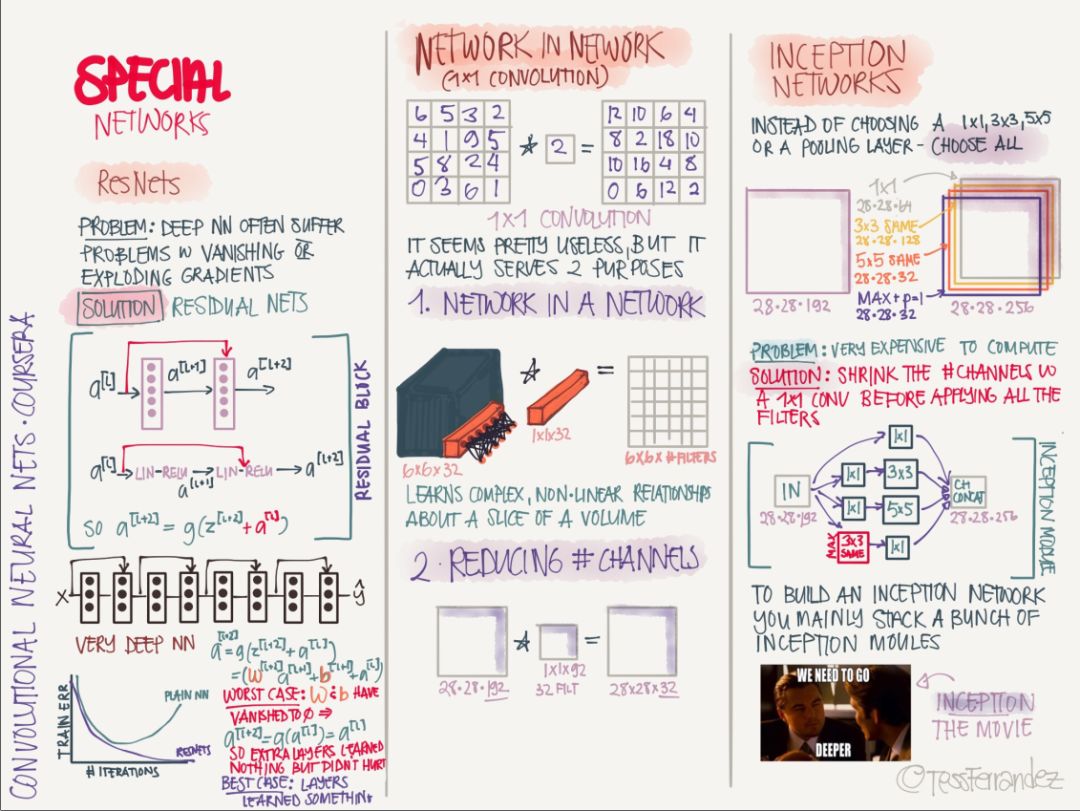 CONVOLUTIONAL NEURAL NETS · COURSERA
SPECIAL
NETWORKS
ResNets
PROBLEM: DEEP NN OFTEN SUFFER
PROBLEMS W VANISHING OR
EXPLODING GRADIENTS
SOLUTION: RESIDUAL NETS
a[l] a[l+1] a[l+2]
a[l] LIN-RELU LIN-RELU a[l+2]
a[l+1]
SO a[l+2] = g(z[l+2] + a[l])
RESIDUAL BLOCK
X ŷ
VERY DEEP NN
TRAIN ERR
PLAIN NN
RESNETS
# ITERATIONS
a[l+2] = g(z[l+2] + a[l])
=(W[l+2] a[l+1] + b[l+1] + a[l])
WORST CASE: W & b HAVE
VANISHED TO Ø ⇒
a[l+2] = g(a[l]) = a[l]
SO EXTRA LAYERS LEARNED
NOTHING BUT DIDN'T HURT
BEST CASE: LAYERS
LEARNED SOMETHING
NETWORK IN NETWORK
(1x1 CONVOLUTION)
6 5 3 2
4 1 9 5
5 8 2 4
0 3 6 1
* 2 =
12 10 6 4
8 2 18 10
10 16 4 8
0 6 12 2
1x1 CONVOLUTION
IT SEEMS PRETTY USELESS, BUT IT
ACTUALLY SERVES 2 PURPOSES
1. NETWORK IN A NETWORK
* =
6x6x32
1x1x32
6x6x #FILTERS
LEARNS COMPLEX, NON-LINEAR RELATIONSHIPS
ABOUT A SLICE OF A VOLUME
2. REDUCING # CHANNELS
* =
28·28·192
1x1x92
32 FILT
28x28x32
INCEPTION
NETWORKS
INSTEAD OF CHOOSING A 1x1, 3x3, 5x5
OR A POOLING LAYER - CHOOSE ALL
1x1
28·28·64
3x3 SAME
28·28·128
5x5 SAME
28·28·32
MAX + p=1
28·28·32
28·28·192
28·28·256
PROBLEM: VERY EXPENSIVE TO COMPUTE
SOLUTION: SHRINK THE #CHANNELS W
A 1x1 CONV BEFORE APPLYING ALL THE
FILTERS
IN
28·28·192
1x1
1x1 3x3
1x1 5x5
MAX 3x3 SAME 1x1
CH CONCAT
28·28·256
INCEPTION MODULE
TO BUILD AN INCEPTION NETWORK
YOU MAINLY STACK A BUNCH OF
INCEPTION MOULES
WE NEED TO GO
DEEPER
INCEPTION
THE MOVIE
@TessFerrandez